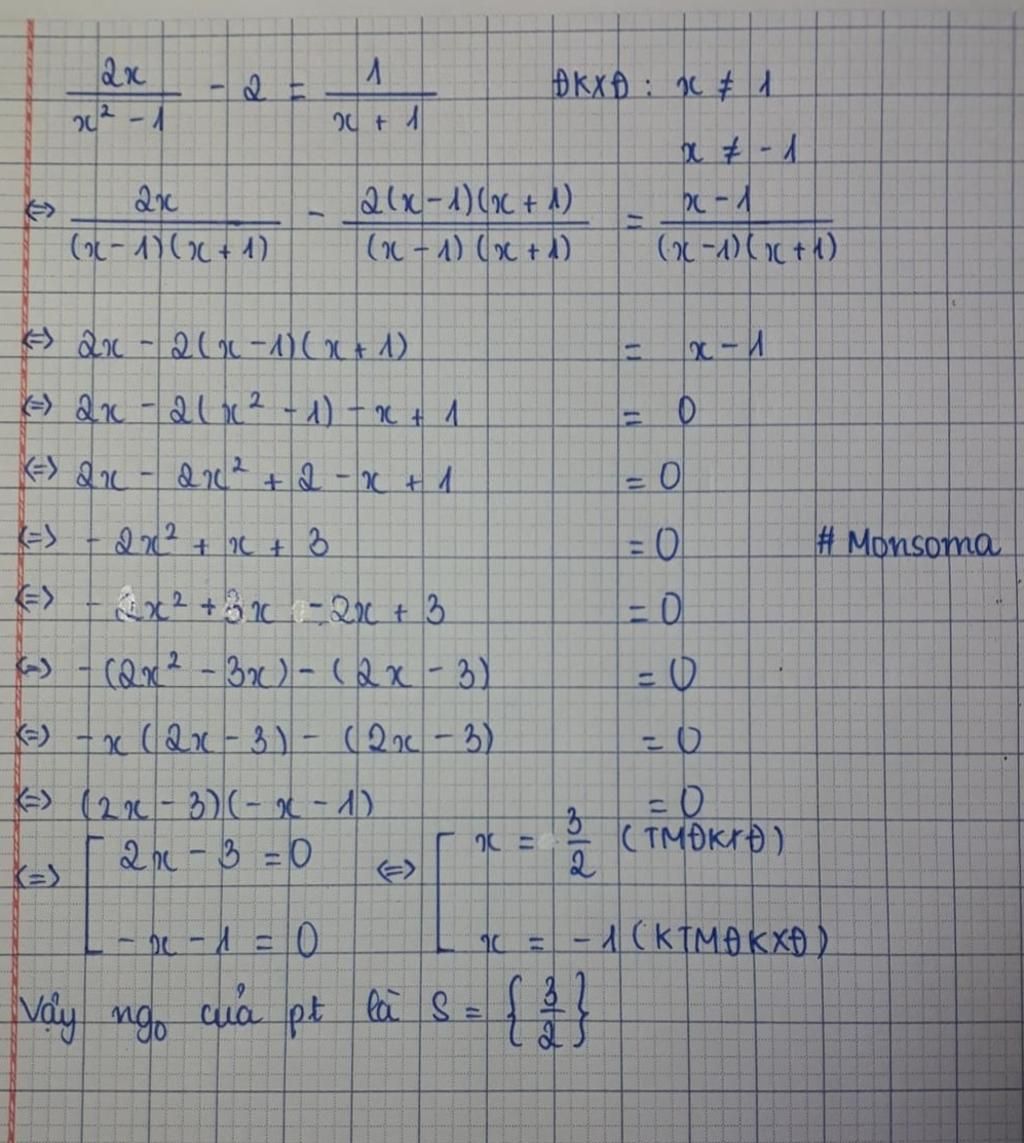 2x/(x² - 1) - 2 = 1/(x + 1) ĐKXĐ : x ≠ 1
x ≠ -1
<=> 2x/((x-1)(x+1)) - 2(x-1)(x+1)/((x-1)(x+1)) = (x-1)/((x-1)(x+1))
<=> 2x - 2(x-1)(x+1) = x-1
<=> 2x - 2(x² - 1) - x + 1 = 0
<=> 2x - 2x² + 2 - x + 1 = 0
<=> - 2x² + x + 3 = 0 # Monsoma
<=> - 2x² + 3x - 2x + 3 = 0
<=> -(2x² - 3x) - (2x - 3) = 0
<=> -x(2x - 3) - (2x - 3) = 0
<=> (2x - 3)(-x - 1) = 0
<=> [ 2x - 3 = 0 <=> [ x = 3/2 (TMĐKXĐ)
-x - 1 = 0 x = -1 (KTMĐKXĐ)
Vậy ngo của pt là S = {3/2}